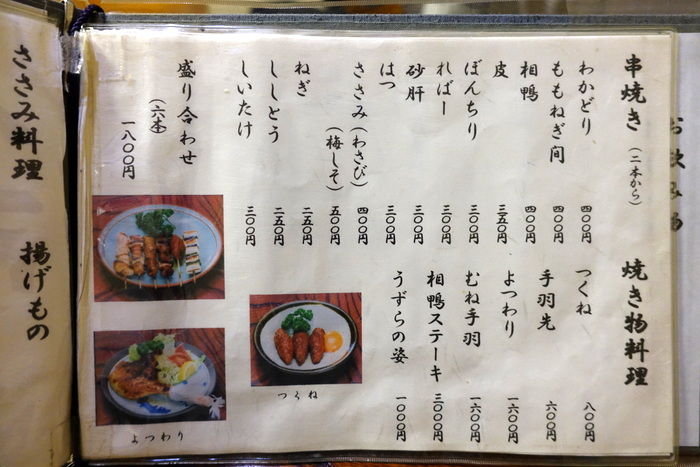 お飲み物
串焼き (二本から)
わかどり 四〇〇円
ももねぎ間 四〇〇円
相鴨 四〇〇円
皮 三五〇円
ぼんちり 三〇〇円
ればー 三〇〇円
砂肝 三〇〇円
はつ 三〇〇円
ささみ (わさび) 四〇〇円
(梅しそ) 五〇〇円
ねぎ 二五〇円
ししとう 二五〇円
しいたけ 三〇〇円
盛り合わせ
(六本)
一八〇〇円
焼き物料理
つくね 八〇〇円
手羽先 六〇〇円
よつわり 一六〇〇円
むね手羽 一六〇〇円
相鴨ステーキ 三〇〇〇円
うずらの姿 一〇〇〇円
つくね
よつわり
ささみ料理 揚げもの